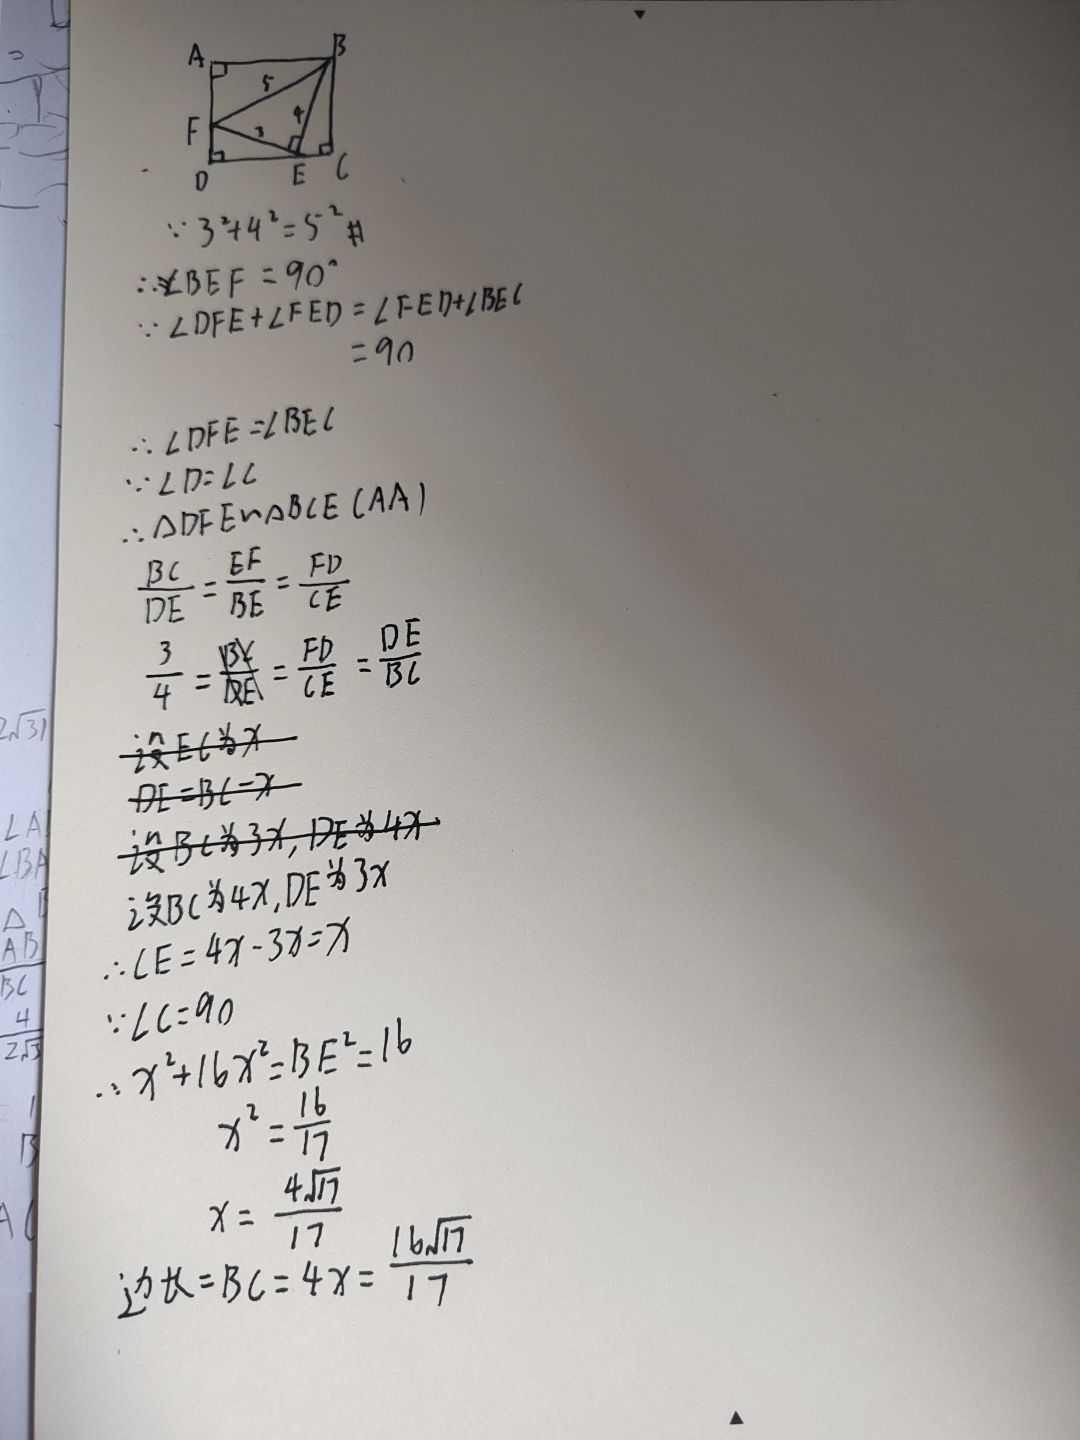 A B
5
4
F 3
D E C
∵ 3²+4²=5²
∴ ∠BEF = 90°
∵ ∠DFE+∠FED = ∠FED+∠BEC
= 90
∴ ∠DFE = ∠BEC
∵ ∠D=∠C
∴ △DFE∽△BCE (AA)
BC/DE = EF/BE = FD/CE
3/4 = BC/DE = FD/CE = DE/BC
设EC为x
DE = BC-x
设BC为3x, DE为4x
设BC为4x, DE为3x
∴ CE = 4x-3x=x
∵ ∠C=90
∴ x²+16x²=BE²=16
x² = 16/17
x = 4√17/17
边长=BC=4x=16√17/17
2√31
∠A
∠BA
△
AB
BC
4
2√3
1
B
A